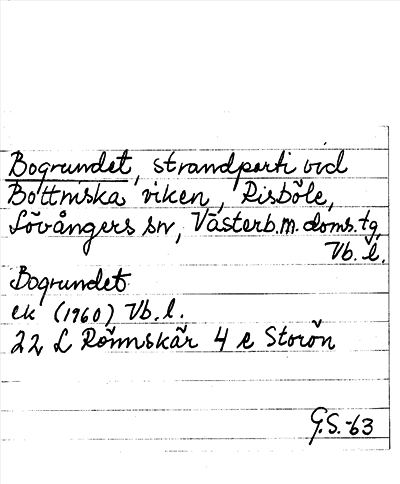 Bogrundet, strandparti vid
Bottniska viken, Risböle,
Lövångers sn, Västerb.m. doms. tg,
Vb. l.
Bogrundet
ek (1960) Vb. l.
22 L Rönnskär 4 e Storön
G.S.-63